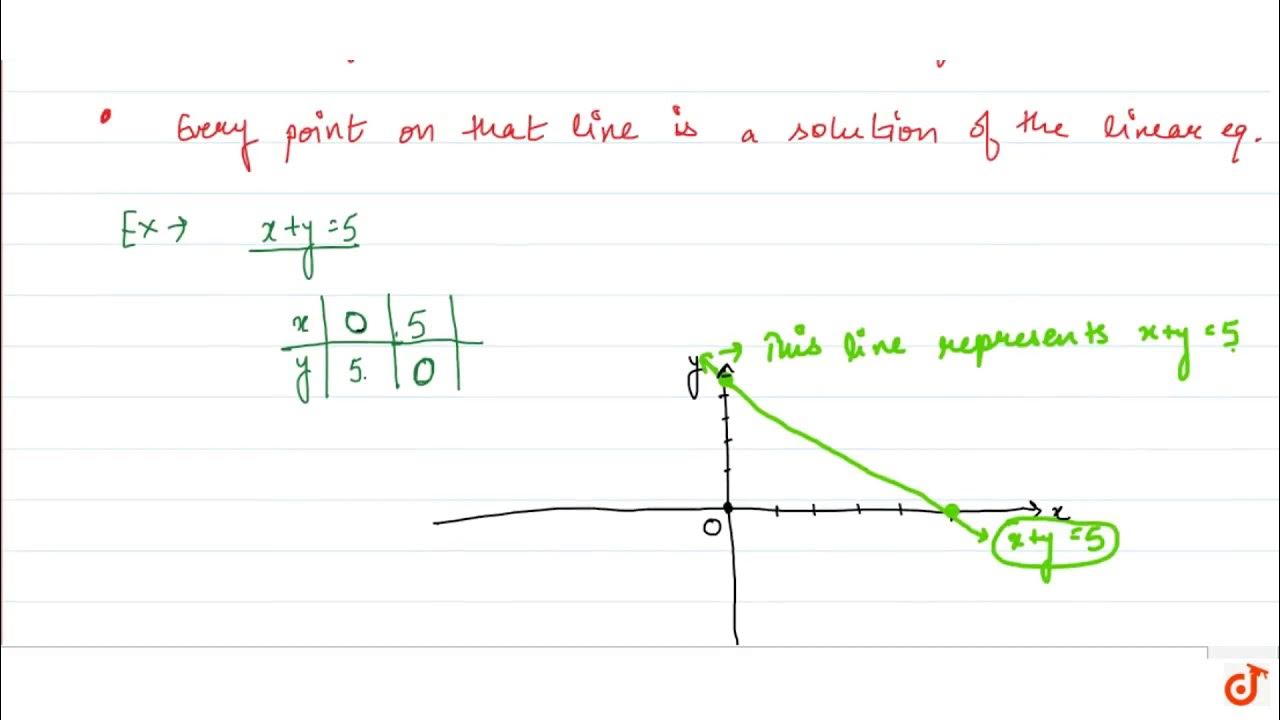 • Every point on that line is a solution of the linear eq.
Ex → x+y=5
x 0 5
y 5 0
→ This line represents x+y=5
y
O
x
x+y=5